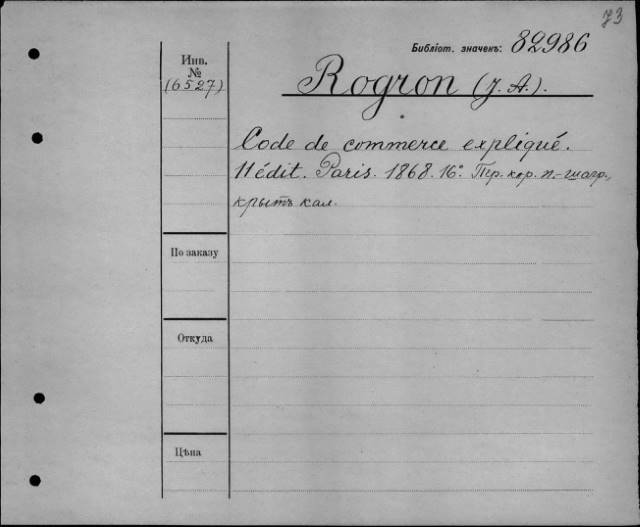 73
Библіот. значекъ: 82986
Инв.
№
(6527)
Rogron (J. A.).
Code de commerce expliqué.
11 édit. Paris. 1868. 16°. Пер. кор. п.-шагр.,
крытъ кал.
По заказу
Откуда
Цѣна